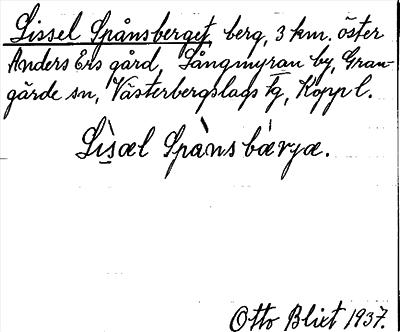 Lissel Spånsberget berg, 3 km. öster
Anders Ers gård, Långmyran by, Gran-
gärde sn, Västerbergslags tg, Koppl.
Lìsæl Spànsbàrjæ.
Otto Blixt 1937.